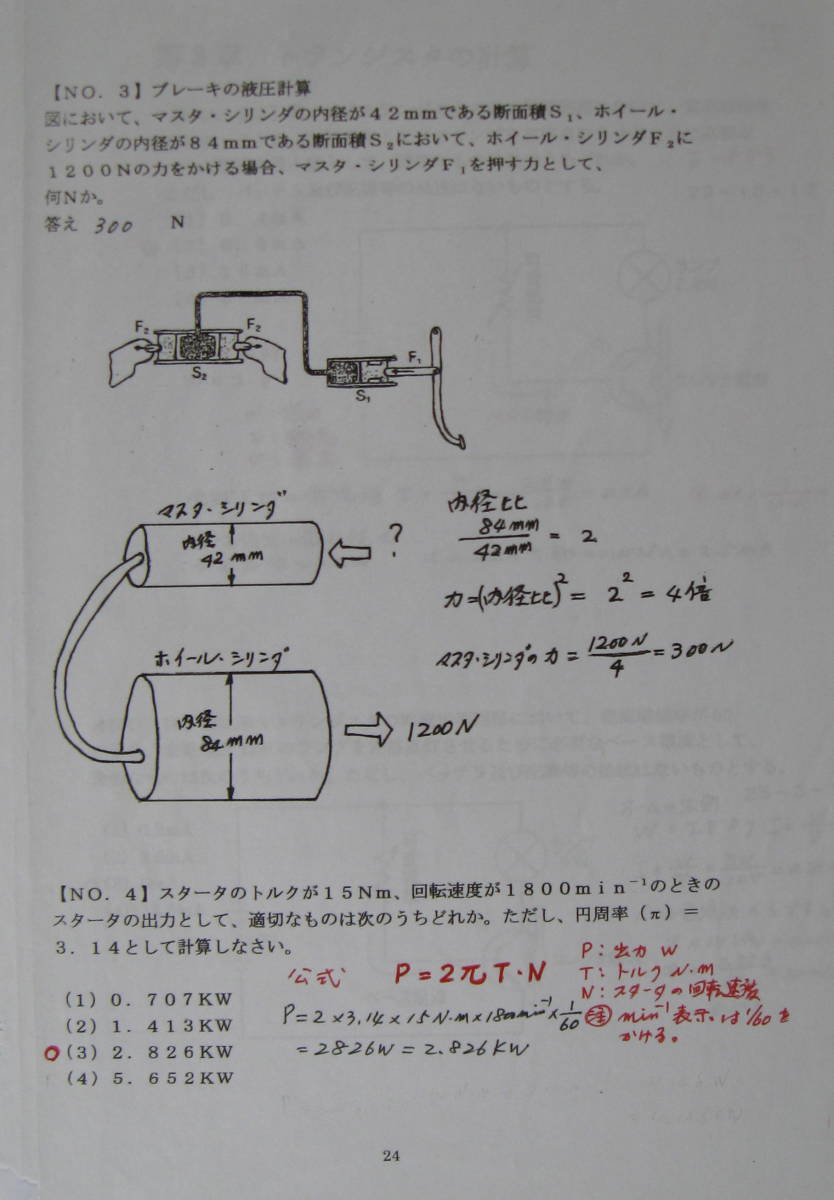 【NO．3】ブレーキの液圧計算
図において、マスタ・シリンダの内径が42mmである断面積S₁、ホイール・
シリンダの内径が84mmである断面積S₂において、ホイール・シリンダF₂に
1200Nの力をかける場合、マスタ・シリンダF₁を押す力として、
何Nか。
答え 300 N
F₂
F₂
S₂
F₁
S₁
マスタ・シリンダ
内径
42mm
?
内径比
84mm/42mm = 2
力=(内径比)² = 2² = 4倍
マスタ・シリンダの力 = 1200N/4 = 300N
ホイール・シリンダ
内径
84mm
1200N
【NO．4】スタータのトルクが15Nm、回転速度が1800min⁻¹のときの
スタータの出力として、適切なものは次のうちどれか。ただし、円周率（π）＝
3．14として計算しなさい。
公式 P=2πT·N
P：出力 W
T：トルク N·m
N：スタータの回転速度
注 min⁻¹表示は1/60を
かける。
(1) 0．707KW
(2) 1．413KW
○(3) 2．826KW
(4) 5．652KW
P=2×3.14×15N·m×1800min⁻¹×1/60
=2826W=2.826KW
24